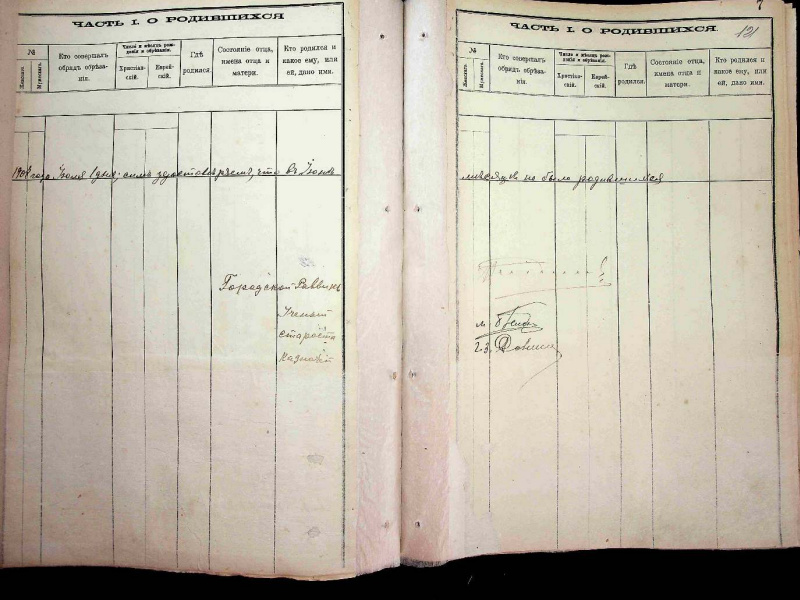 ЧАСТЬ I. О РОДИВШИХСЯ
№
Женскъ.
Мужескъ.
Кто совершалъ обрядъ обрѣзанія.
Число и мѣсяцъ рожденія и обрѣзанія.
Христіанскій.
Еврейскій.
Гдѣ родился.
Состояніе отца, имена отца и матери.
Кто родился и какое ему, или ей, дано имя.
года Іюля 1 дня; симъ удостовѣряемъ, что въ Іюнѣ
Городской Раввинъ
Ученый
староста
Казначей
7
121
ЧАСТЬ I. О РОДИВШИХСЯ.
№
Женскъ.
Мужескъ.
Кто совершалъ обрядъ обрѣзанія.
Число и мѣсяцъ рожденія и обрѣзанія.
Христіанскій.
Еврейскій.
Гдѣ родился.
Состояніе отца, имена отца и матери.
Кто родился и какое ему, или ей, дано имя.
мѣсяцѣ не было родившихся